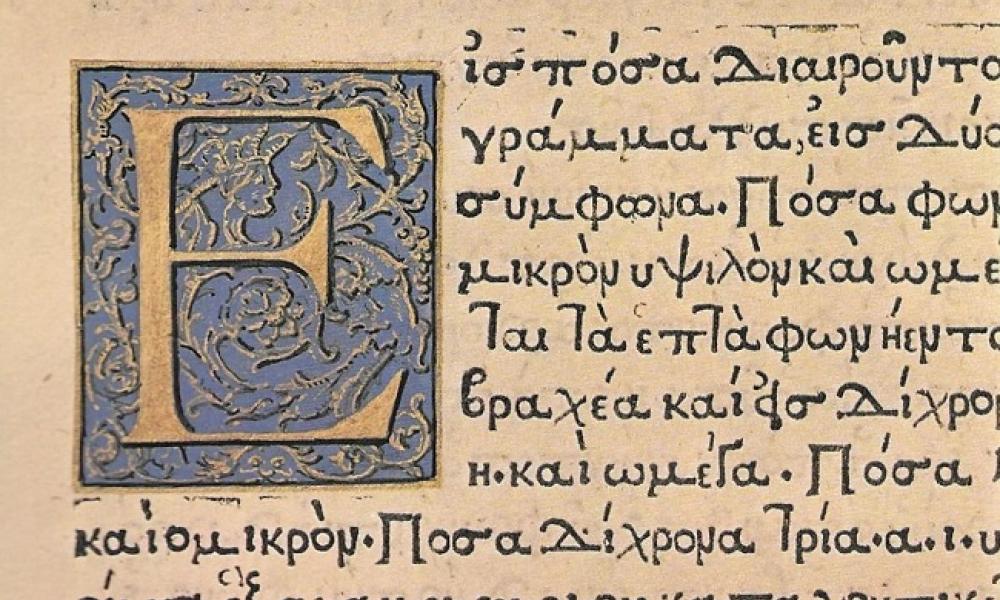 Εἰσ πόσα Διαιροῦντα
γράμματα, εἰσ Δύο
σύμφωνα. Πόσα φων
μικρὸν υψιλὸν καὶ ωμε
Ται Τὰ επΤὰ φωνήεντα
βραχέα καί εἰσ Δίχρον
η. καὶ ωμέΓα. Πόσα
καὶ ὀμικρὸν. Ποσα Δίχρονα Τρία. α. ι. υ